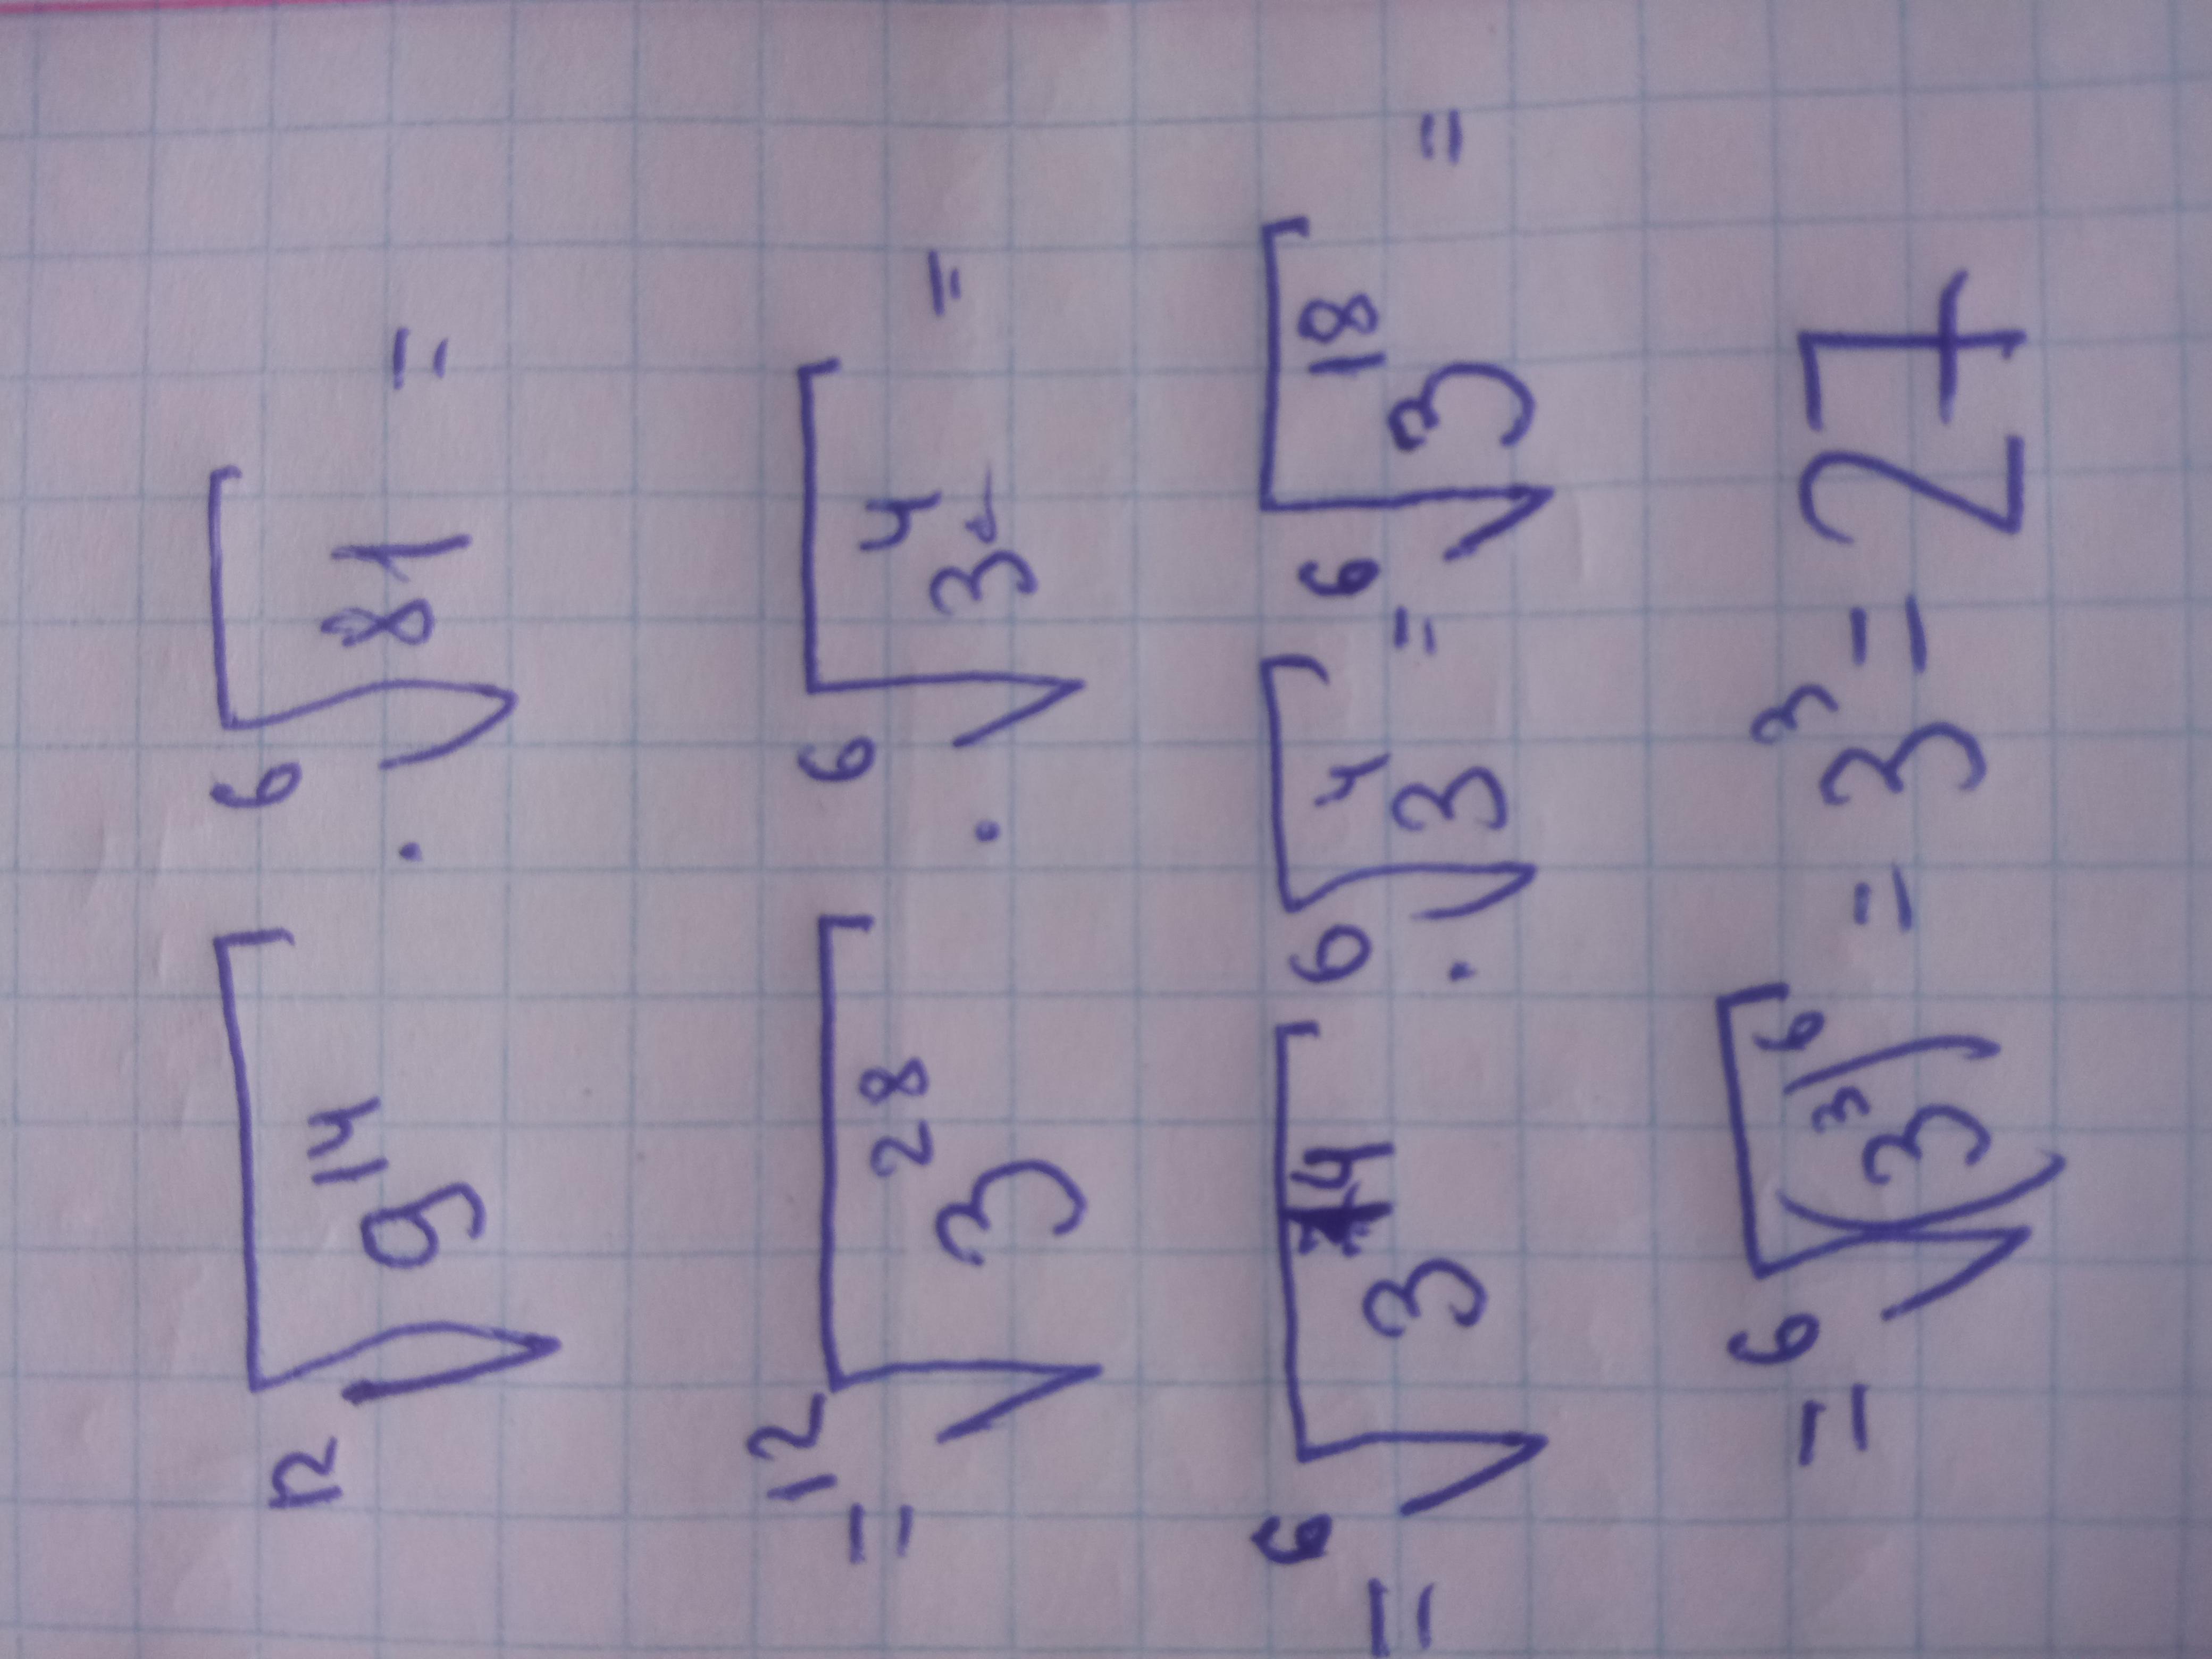 ¹²√9¹⁴ · ⁶√81 =
= ¹²√3²⁸ · ⁶√3⁴ =
= ⁶√3¹⁴ · ⁶√3⁴ = ⁶√3¹⁸ =
= ⁶√(3³)⁶ = 3³ = 27